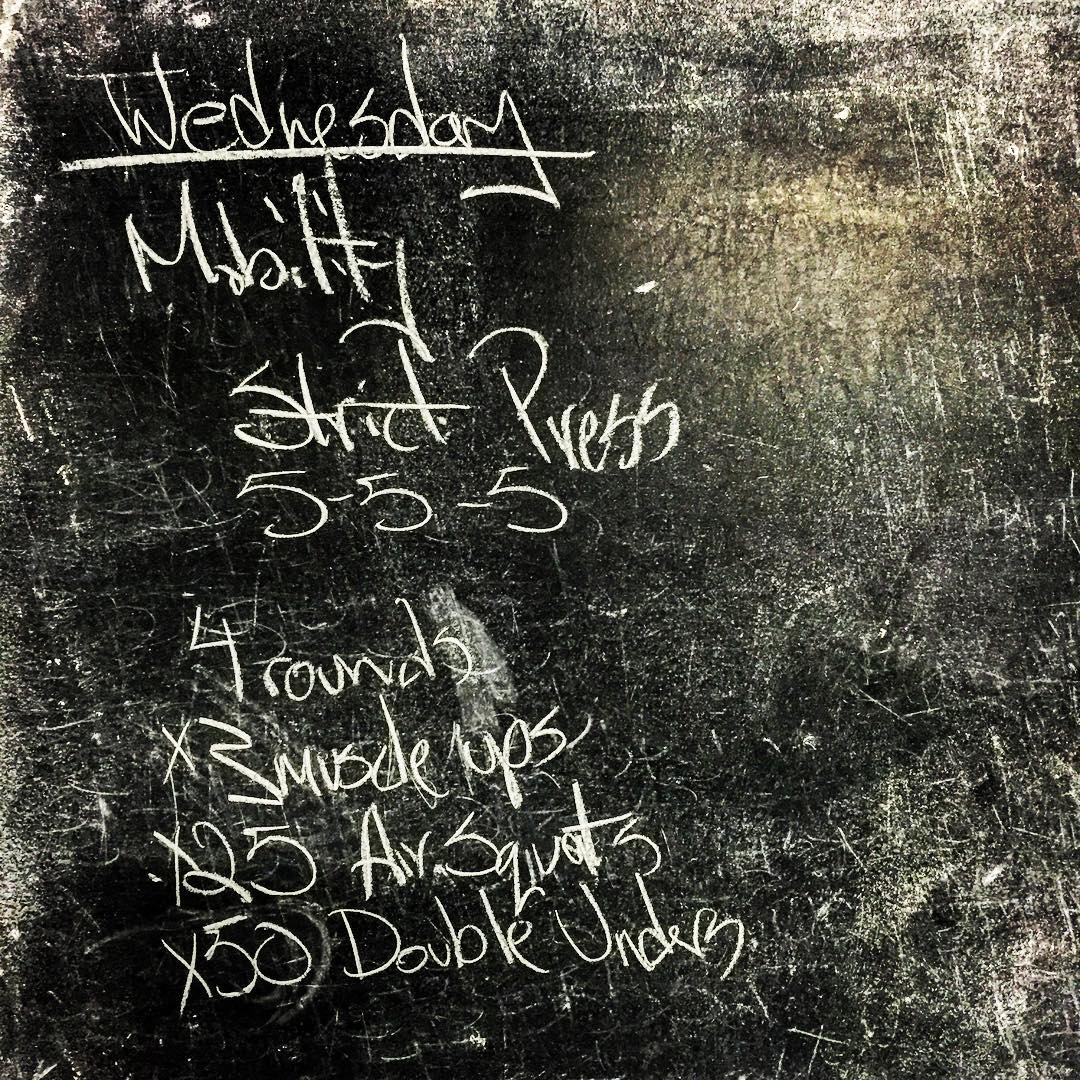 Wednesday
Mobility
Strict Press
5-5-5
4 rounds
x3 muscle ups
x25 Air Squats
x50 Double Unders